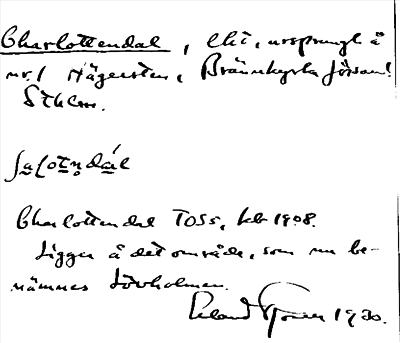 Charlottendal, lht, ursprungl å
nr 1 Hägersten, Brännkyrka församl
Sthlm.
Charlottendal TOSs, kb 1908.
Ligger å det område, som nu be-
nämnes Lövholmen.
Erland 1930.